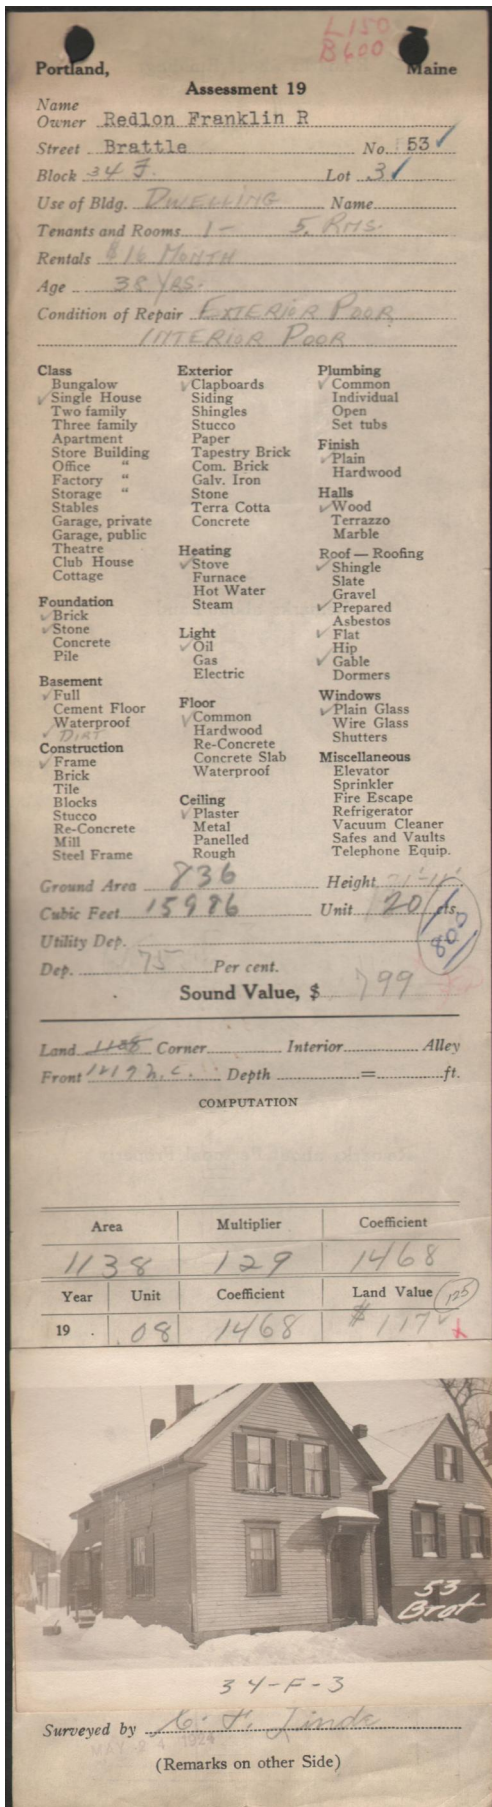 L150
B600
Portland, Maine
Assessment 19
Name
Owner Redlon Franklin R
Street Brattle No. 53 ✓
Block 34 F. Lot 3 ✓
Use of Bldg. DWELLING Name
Tenants and Rooms 1 - 5. RMS.
Rentals $16 MONTH
Age 38 YRS.
Condition of Repair EXTERIOR POOR
INTERIOR POOR
Class
Bungalow
✓ Single House
Two family
Three family
Apartment
Store Building
Office "
Factory "
Storage "
Stables
Garage, private
Garage, public
Theatre
Club House
Cottage
Foundation
✓ Brick
✓ Stone
Concrete
Pile
Basement
✓ Full
Cement Floor
Waterproof
✓ DIRT
Construction
✓ Frame
Brick
Tile
Blocks
Stucco
Re-Concrete
Mill
Steel Frame
Exterior
✓ Clapboards
Siding
Shingles
Stucco
Paper
Tapestry Brick
Com. Brick
Galv. Iron
Stone
Terra Cotta
Concrete
Heating
✓ Stove
Furnace
Hot Water
Steam
Light
✓ Oil
Gas
Electric
Floor
✓ Common
Hardwood
Re-Concrete
Concrete Slab
Waterproof
Ceiling
✓ Plaster
Metal
Panelled
Rough
Plumbing
✓ Common
Individual
Open
Set tubs
Finish
✓ Plain
Hardwood
Halls
✓ Wood
Terrazzo
Marble
Roof — Roofing
✓ Shingle
Slate
Gravel
✓ Prepared
Asbestos
✓ Flat
Hip
✓ Gable
Dormers
Windows
✓ Plain Glass
Wire Glass
Shutters
Miscellaneous
Elevator
Sprinkler
Fire Escape
Refrigerator
Vacuum Cleaner
Safes and Vaults
Telephone Equip.
Ground Area 836 Height
Cubic Feet 15986 Unit 20 cts.
800
Utility Dep.
Dep. 75 Per cent.
Sound Value, $ 799
Land 1138 Corner Interior Alley
Front Depth = ft.
COMPUTATION
Area Multiplier Coefficient
1138 129 1468
Year Unit Coefficient Land Value 125
19 . .08 1468 $ 117
53
Brat
34-F-3
Surveyed by
MAY 24 1924
(Remarks on other Side)